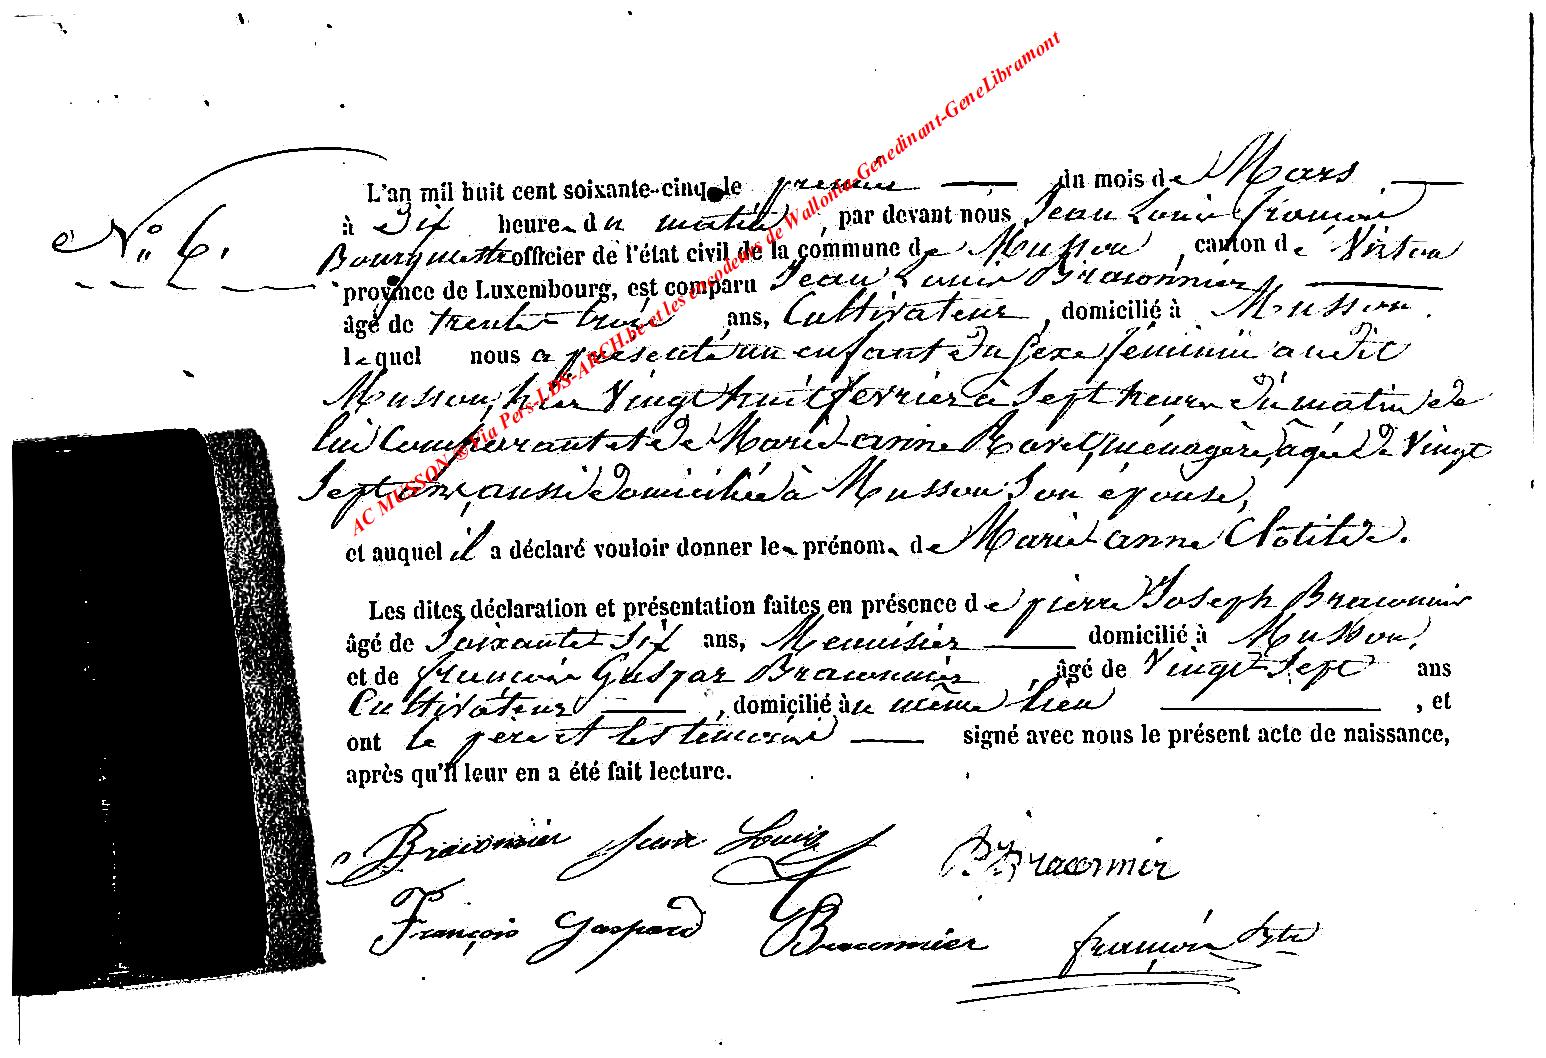 AC MUSSON © Via Pers-LDS-ARCH.be et les encodeurs de Wallonia-Genedinant-GeneLibramont
N° 6.
L'an mil huit cent soixante-cinq le premier du mois de Mars
à Dix heures du matin, par devant nous Jean Louis françois
officier de l'état civil de la commune de Musson, canton de Virton
province de Luxembourg, est comparu Jean Louis Braconnier
âgé de trente trois ans, Cultivateur, domicilié à Musson.
lequel nous a présenté un enfant du sexe féminin né audit
Musson, hier Vingt huit fevrier à Sept heures du matin de
lui Comparant et de Marie anne ménagère, agée de Vingt
Sept ans, aussi domiciliée à Musson, Son épouse,
et auquel il a déclaré vouloir donner les prénoms de Marie anne Clotilde.
Les dites déclaration et présentation faites en présence de pierre Joseph Braconnier
âgé de Soixante Six ans, Menuisier domicilié à Musson,
et de françois Gaspar Braconnier, âgé de Vingt Sept ans
Cultivateur, domicilié au même lieu, et
ont le père et les témoins signé avec nous le présent acte de naissance,
après qu'il leur en a été fait lecture.
Braconnier Jean Louis
Braconnier
François Gaspard Braconnier
françois